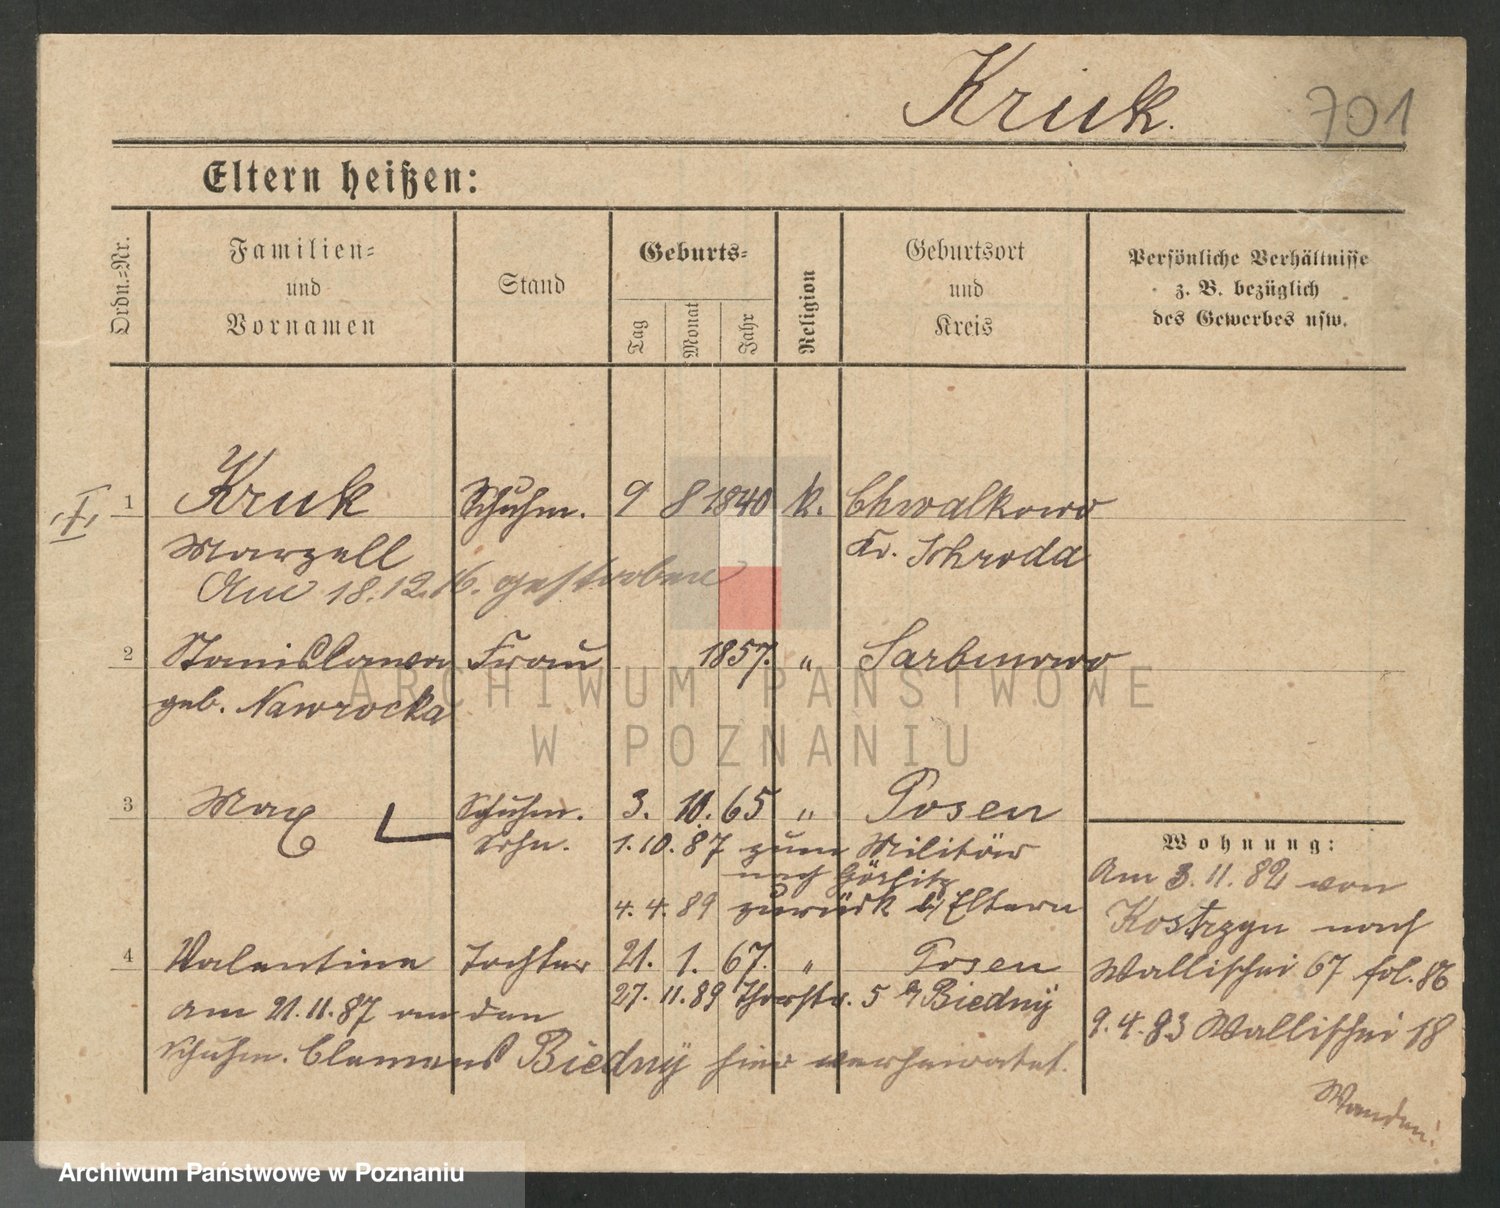 Kruk.
701
Eltern heißen:
Ordn.-Nr.
Familien-
und
Vornamen
Stand
Geburts-
Tag
Monat
Jahr
Religion
Geburtsort
und
Kreis
Persönliche Verhältnisse
z. B. bezüglich
des Gewerbes usw.
I
1 Kruk Schuhm. 9 8 1840 k. Chwalkowo
Marzell Kr. Schroda
Am 18.12.16. gestorben
2 Stanislawa Frau 1857. " Sarbinowo
geb. Nawrocka
ARCHIWUM PAŃSTWOWE
W POZNANIU
3 Max Schuhm. 3. 10. 65 " Posen
Sohn. 1.10.87 zum Militär
nach Görlitz
4.4.89 zurück b/ Eltern
4 Valentine Tochter 21. 1. 67. " Posen
27.11.89 Thorstr. 5 b/ Biedny
Am 21.11.87 an den
Schuhm. Clemens Biedny hier verheiratet.
Wohnung:
Am 3.11.82 von
Kostrzyn nach
Wallischei 67 fol. 86
9.4.83 Wallischei 18
Archiwum Państwowe w Poznaniu